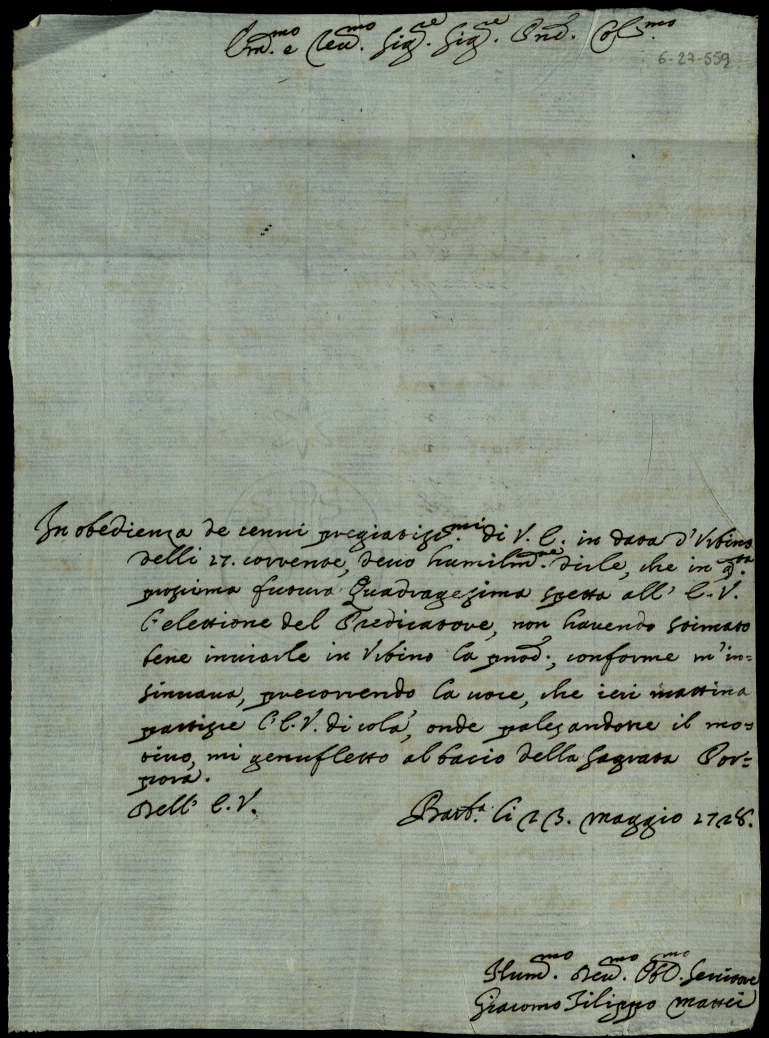 Em.mo e Reu.mo Sig.re Sig.re Pnõ. Col.mo
6-27-559
In obedienza de cenni pregiatiss.mi di V. E. in data d'Vrbino
delli 17. corrente, deuo humilm.te dirle, che in q.ta
prossima futura Quadragesima spetta all' E. V.
l'elettione del Predicatore, non hauendo stimato
bene inuiarle in Vrbino la pnte:, conforme m'in=
sinuaua, precorrendo la uoce, che ieri mattina
partisse l'E. V. di colà, onde palesandone il mo=
tiuo, mi genufletto al bacio della Sagrata Por=
pora.
Dell' E. V.
Barb.a li 23. maggio 1728.
Hum.mo Deu.mo Obl.mo Seruitore
Giacomo Filippo Mattei